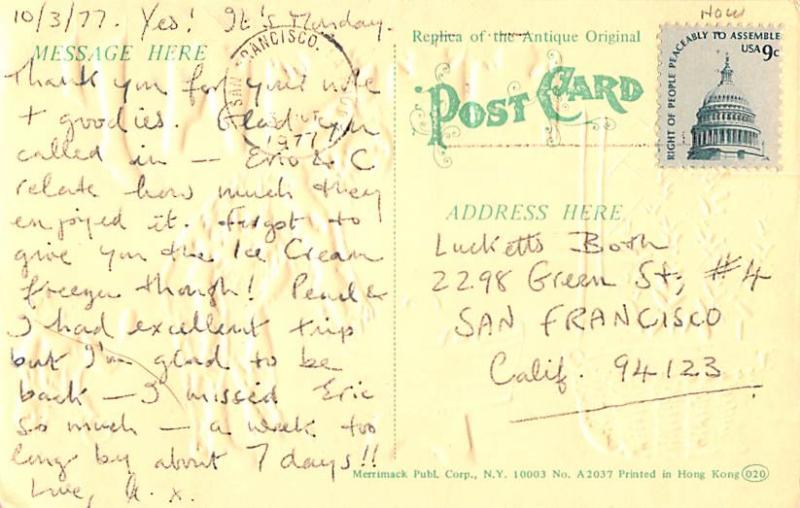 10/3/77. Yes! It's Monday.
MESSAGE HERE
Thank you for your note
+ goodies. Glad you
called in — Eric & C
relate how much they
enjoyed it. Forgot to
give you the Ice Cream
freezer though! &
I had excellent trip
but I'm glad to be
back — I missed Eric
so much — a week too
long by about 7 days!!
Love, A. x.
SAN FRANCISCO.
1977
Replica of the Antique Original
POST CARD
RIGHT OF PEOPLE PEACEABLY TO ASSEMBLE
USA 9c
ADDRESS HERE
Lucketts Booth
2298 Green St, #4
SAN FRANCISCO
Calif. 94123
Merrimack Publ. Corp., N.Y. 10003 No. A2037 Printed in Hong Kong 020